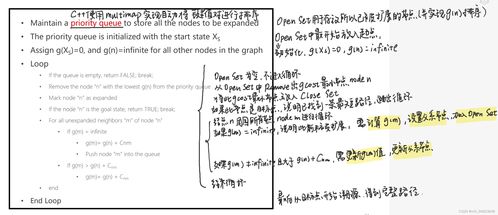 C++使用multimap实现自动将键值对进行排序
• Maintain a priority queue to store all the nodes to be expanded
• The priority queue is initialized with the start state Xs
• Assign g(Xs)=0, and g(n)=infinite for all other nodes in the graph
• Loop
• If the queue is empty, return FALSE; break;
• Remove the node "n" with the lowest g(n) from the priority queue
• Mark node "n" as expanded
• If the node "n" is the goal state, return TRUE; break;
• For all unexpanded neighbors "m" of node "n"
• If g(m) = infinite
• g(m)= g(n) + Cnm
• Push node "m" into the queue
• If g(m) > g(n) + Cnm
• g(m)= g(n) + Cnm
• end
• End Loop
Open Set用于存放所以已被扩展的节点
Open Set中最开始放入起点
初始化, g(Xs)=0, g(n)=infinite
Open Set为空, 不进入循环
从Open Set中Remove出g cost最小节点 node n
将此g cost最小节点放入 Close Set
结点 n 周围所有 node m 进行循环
如果 g(m) = infinite, 说明此 需计算 g(m), 设置父亲节点, Open Set
如果 g(m) ≠ infinite 且大于 g(n) + Cnm, 需更新 g(m) 值, 更新父亲节点
结束循环
最后从 开始溯源, 得到完整路径.